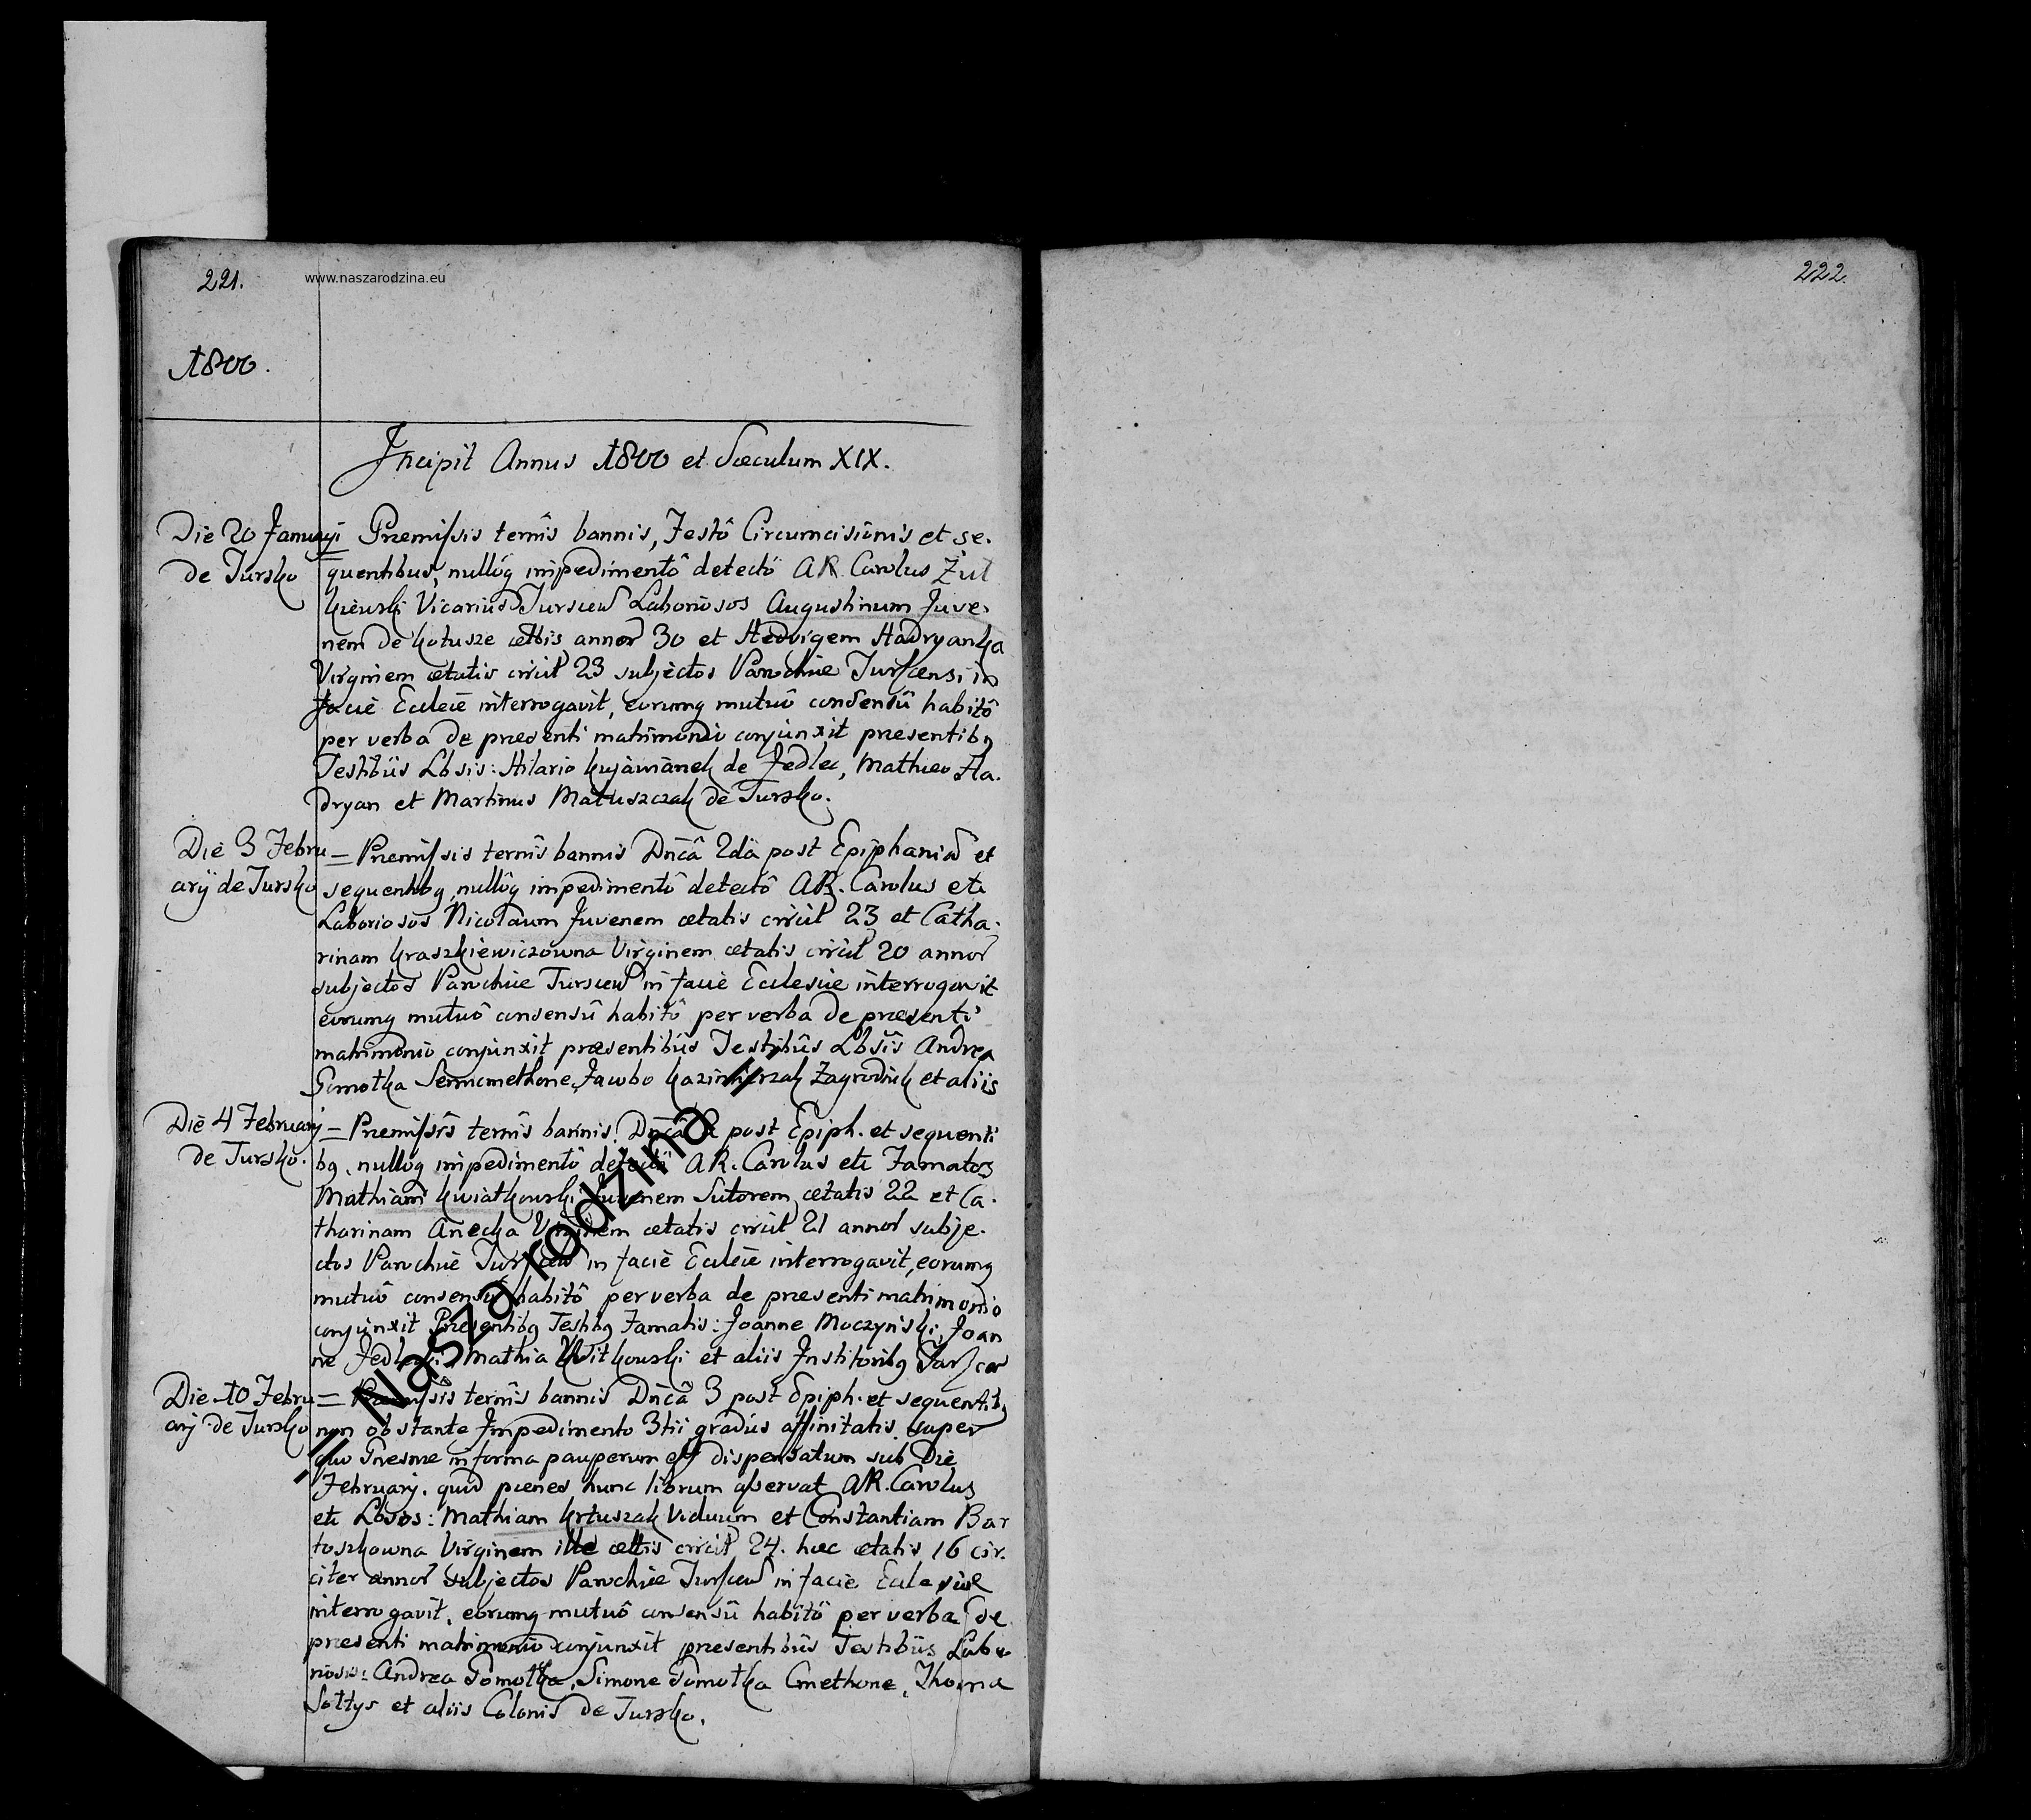 221.
www.naszarodzina.eu
222.
1800.
Incipit Annus 1800 et Sæculum XIX.
Die 20 Januarÿ
de Tursko
Præmissis ternîs bannis, Festô Circumcisiônis et se-
quentibus, nullôq impedimentô detectô AR. Carolus Żuł
kiewski Vicarius Turscen Laboriosos Augustinum Juve-
nem de Kotusze ættis annor 30 et Hedvigem Hadryanka
Virginem ætatis circit 23 subjectos Parochiæ Turscensi in
facie Eccleiæ interrogavit, eorumq mutuô consensû habitô
per verba de præsenti matrimonio conjunxit præsentibq
Testibûs Lbsis: Hilario Kujawianek de Jedlec, Matheo Ha-
dryan et Martinus Matuszczak de Tursko.
Die 3 Febru
arÿ de Tursko
= Præmissis ternîs bannis Dnicâ 2dâ post Epiphaniâ et
sequentibq, nullôq impedimentô detectô AR. Carolus etc
Laboriosos Nicolaum Juvenem ætatis circit 23 et Catha-
rinam Kraszkiewiczowna Virginem ætatis circit 20 annor
subjectos Parochiæ Turscen in facie Ecclesiæ interrogavit
eorumq mutuô consensû habitô per verba de præsenti
matrimonio conjunxit præsentibûs Testibûs Lbsîs Andrea
Gomotka Semicmethone, Jacobo Kazimierzak Zagrodnik et aliis
Die 4 Februarÿ
de Tursko.
= Præmissîs ternîs bannis Dnicâ 2 post Epiph. et sequenti
bq, nullôq impedimentô detectô AR. Carolus etc Famatos
Mathiam Kwiatkowski Juvenem Sutorem ætatis 22 et Ca-
tharinam Anecka Virginem ætatis circit 21 annor subje-
ctos Parochiæ Turscen in facie Eccleiæ interrogavit, eorumq
mutuô consensû habitô per verba de præsenti matrimonio
conjunxit Præsentibq Testibq Famatis: Joanne Moczyński, Joan
ne Mathia Witkowski et aliis Institoribq
Die 10 Febru
arÿ de Tursko
= Præmissîs ternîs bannis Dnicâ 3 post Epiph. et sequentibq
non obstante Impedimento 3tii gradûs affinitatis super
quo Gnesnæ in forma pauperum est dispensatum sub Die
Februarÿ. quod pœnes hunc librum asservat AR. Carolus
etc Lbsos: Mathiam Krtuszak Viduum et Constantiam Bar
toszkowna Virginem ille ættis circit 24. hæc ætatis 16 cir-
citer annor subjectos Parochiæ Turscen in facie Ecclesiæ
interrogavit, eorumq mutuô consensû habitô per verba de
præsenti matrimonio conjunxit præsentibûs Testibûs Labo
riosis: Andrea Gomotka, Simone Gomotka Cmethone, Thoma
Sołtys et aliis Colonis de Tursko.
" Nasza rodzina "